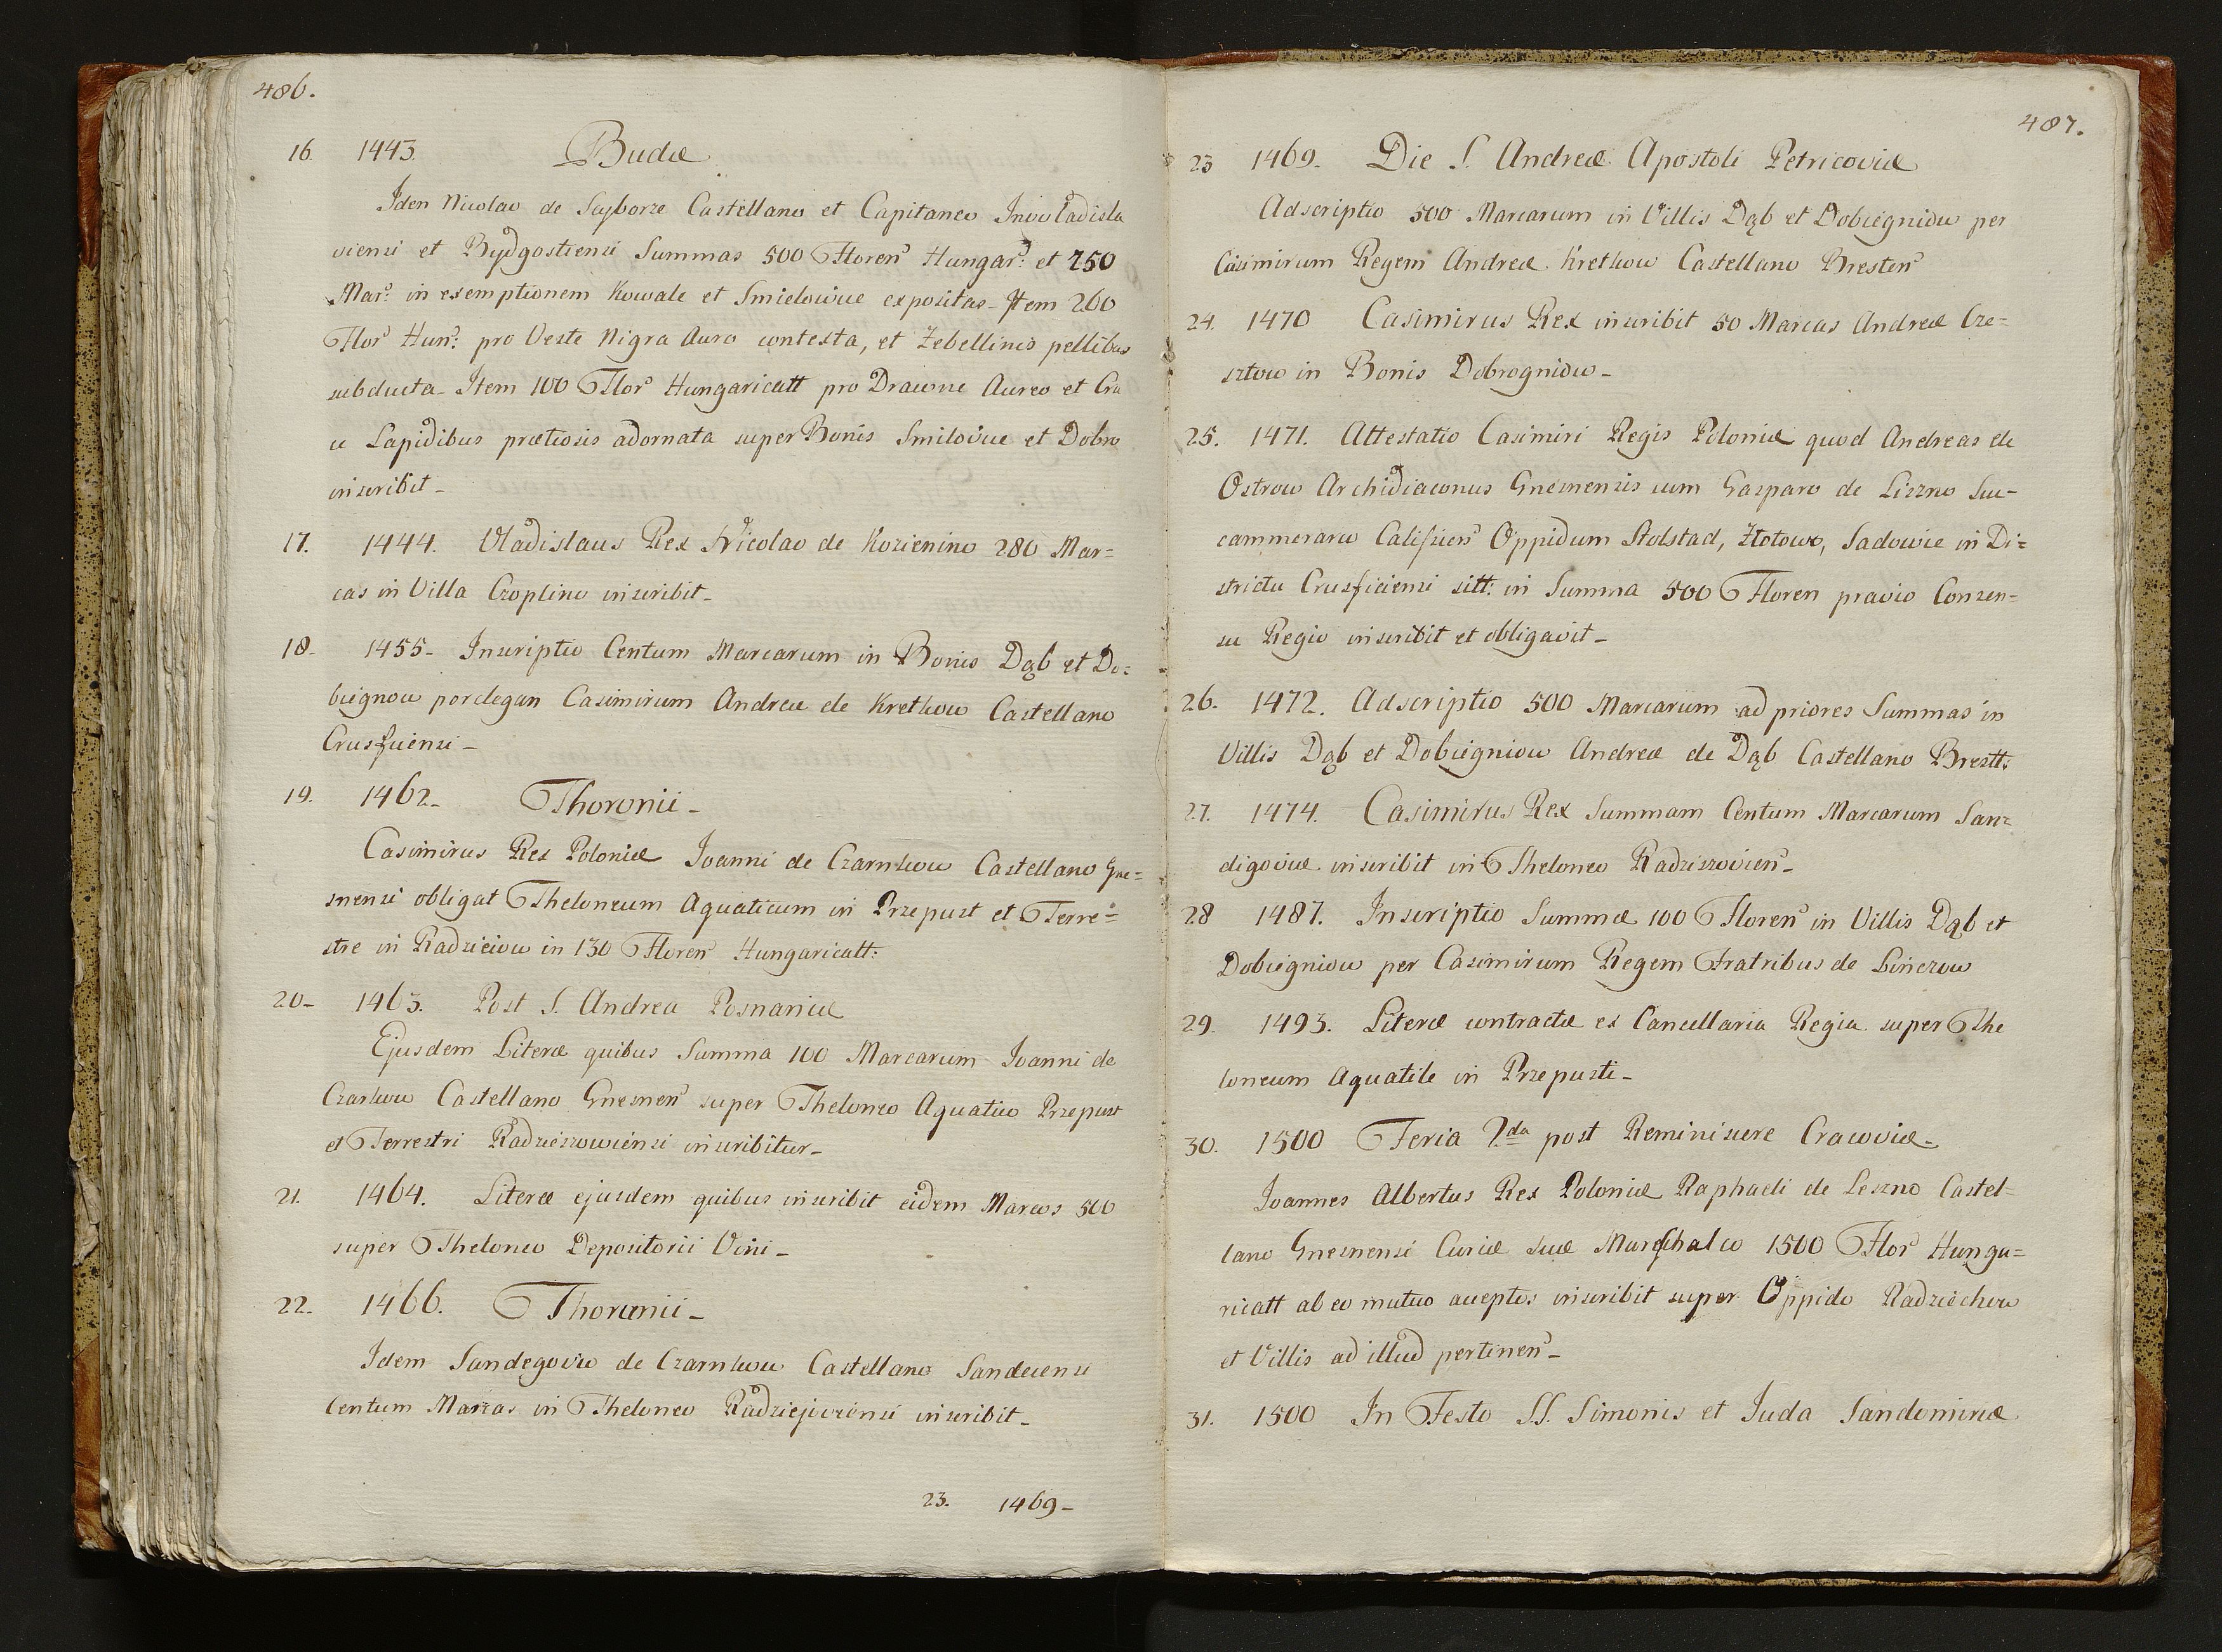 486.
16. 1443. Budæ
Iden Nicolao de Sczyborze Castellano et Capitaneo Inovladisla
viensi et Bydgostiensi Summas 500 Floren Hungar: et 250
Mar: in exemptionem Kowale et Smielowice expositas - Item 260
Flor Hun: pro Veste Nigra Auro contexta, et Zebellinis pellibus
subducta - Item 100 Flor Hungaricatt pro Drawne Aureo et Cru
ce Lapidibus prætiosis adornata super Bonis Smilovice et Dobre
inscribit -
17. 1444. Vladislaus Rex Nicolao de Kozienino 280 Mar=
cas in Villa Czoplino inscribit -
18 - 1455 - Inscriptio Centum Marcarum in Bonis Dąb et Do=
biegnow per degan Casimirum Andreæ de Kretkow Castellano
Crusficiensi -
19. 1462 - Thoronii -
Casimirus Rex Poloniæ Joanni de Czarnkow Castellano Gne=
snensi obligat Theloneum Aquaticum in Przepust et Terre=
stre in Radzieiow in 130 Floren Hungaricatt:
20 - 1463. Post S. Andrea Posnaniæ
Ejusdem Literæ quibus Summa 100 Marcarum Joanni de
Czarkow Castellano Gnesnen super Theloneo Aquatico Przepust
et Terrestri Radzieszowiensi inscribitur -
21. 1464. Literæ ejusdem quibus inscribit eidem Marcos 500
super Theloneo Depositorii Vini -
22 - 1466. Thoronii -
Idem Sandegovio de Czarnkow Castellano Sandecensi
Centum Marcas in Theloneo Radziejoviensi inscribit -
23. 1469 -
487.
23 1469 - Die S. Andreæ Apostoli Petricoviæ
Adscriptio 500 Marcarum in Villis Dąb et Dobiegnidw per
Casimirum Regem Andreæ Kretkow Castellano Bresten
24. 1470 Casimirus Rex inscribit 50 Marcas Andreæ Cze=
sztow in Bonis Dobrogniow -
25. 1471. Attestatio Casimiri Regis Poloniæ quod Andreas de
Ostrow Archidiaconus Gnesnensis cum Gasparo de Liszno Suc-
cammerario Calisien Oppidum Stolstad, Złotowo, Sadowie in Di=
strictu Crusficiensi sitt: in Summa 500 Floren pravio Consen=
su Regio inscribit et obligavit -
26 - 1472. Adscriptio 500 Marcarum ad priores Summas in
Villis Dąb et Dobiegniow Andreæ de Dąb Castellano Brestt:
27. 1474. Casimirus Rex Summam Centum Marcarum San=
digoviæ inscribit in Theloneo Radziszovien -
28 1487. Inscriptio Summæ 100 Floren in Villis Dąb et
Dobiegniow per Casimirum Regem Fratribus de Linczow
29. 1493. Literæ contractæ ex Cancellaria Regia super The
loneum Aquatile in Przepusti -
30. 1500 Feria 2da post Reminiscere Cracoviæ -
Joannes Albertus Rex Poloniæ Raphaeli de Leszno Castel=
lano Gnesnensi Curiæ suæ Marschalco 1500 Flor Hunga=
ricatt ab eo mutuo acceptos inscribit super Oppido Radziechow
et Villis ad illud pertinen -
31. 1500 In Festo S.S. Simonis et Juda Sandomiriæ